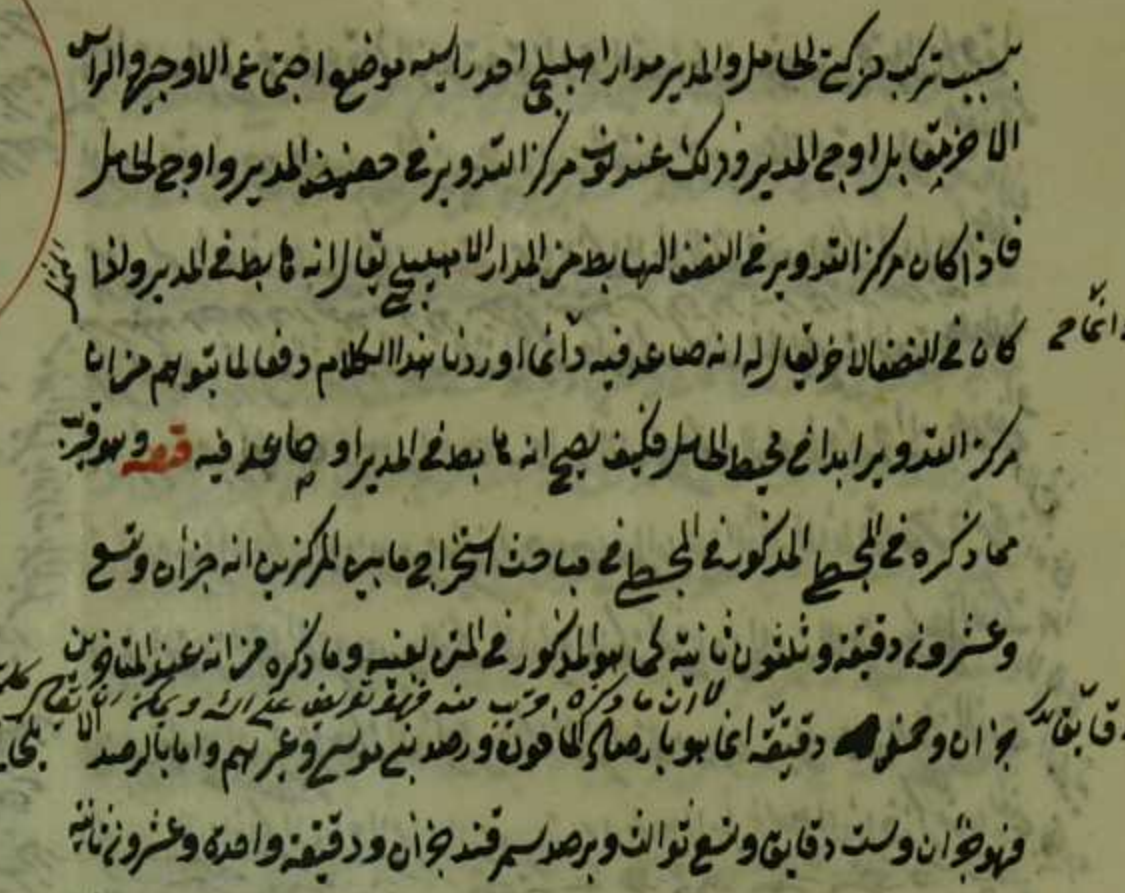 بسبب تركب حركتى الحامل والمدير مدار اهليلجى احد راسيه موضع اجتماع الاوجين والراس
الاخر يقابل اوج المدير وذلك عند كون مركز التدوير فى حضيض المدير واوج الحامل
فاذا كان مركز التدوير فى النصف الهابط من المدار الاهليلجى يقال انه هابط فى المدير واذا
كان فى النصف الاخر يقال انه صاعد فيه دائما اوردنا هذا الكلام دفعا لما يتوهم من ان
مركز التدوير ابدا فى محيط الحامل فكيف يصح انه هابط فى المدير او صاعد فيه قوله وهو قريب
مما ذكره فى المجسطى المذكور فى المجسطى فى مباحث استخراج ما بين المركزين انه جزآن وتسع
وعشرون دقيقة وثلثون ثانية كما هو المذكور فى المتن بعينه وما ذكره من انه عند المتاخرين
لا ان ما ذكره قريب منه فهو
جزآن وخمس دقيقة انما هو بارصاد المأمون ورصد بنى موسى وغيرهم واما بالرصد
دقايق
فهو جزآن وست دقايق وتسع ثوالث وبرصد سمرقند جزآن ودقيقة واحدة وعشرون ثانية